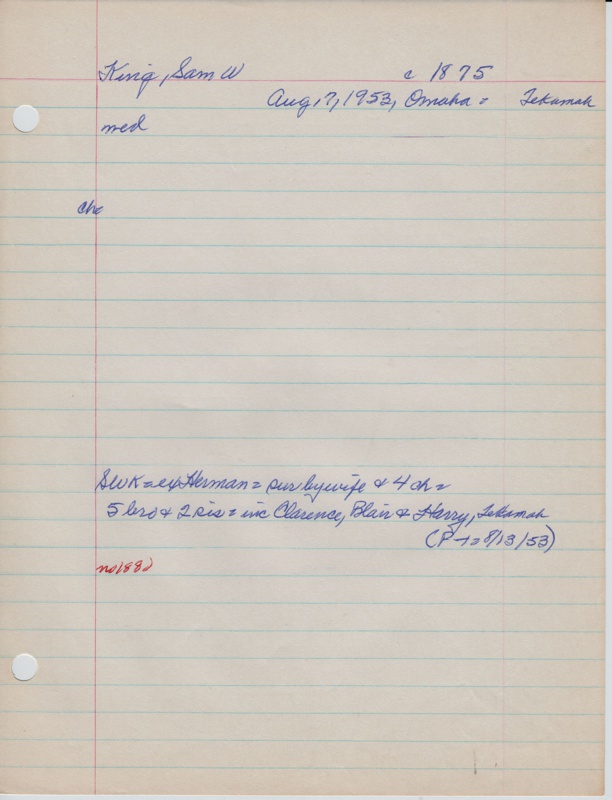 King, Sam W c 1875
Aug, 7, 1953, Omaha = Tekamah
med
ch=
SWK = ex Herman = sur by wife & 4 ch =
5 bro & 2 sis = inc Clarence, Blair & Harry, Tekamah
(P-T = 8/13/53)